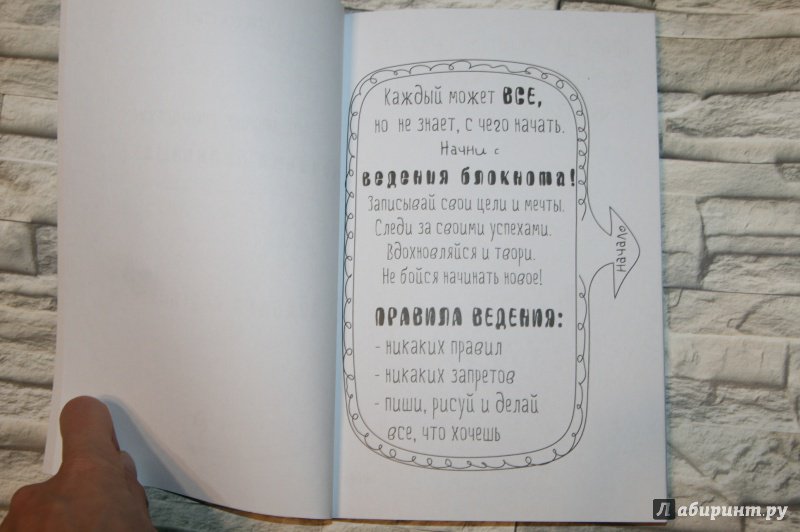 Каждый может ВСЕ,
но не знает, с чего начать.
Начни с
ведения блокнота!
Записывай свои цели и мечты.
Следи за своими успехами.
Вдохновляйся и твори.
Не бойся начинать новое!
ПРАВИЛА ВЕДЕНИЯ:
- никаких правил
- никаких запретов
- пиши, рисуй и делай
все, что хочешь
Начало
Лабиринт.ру